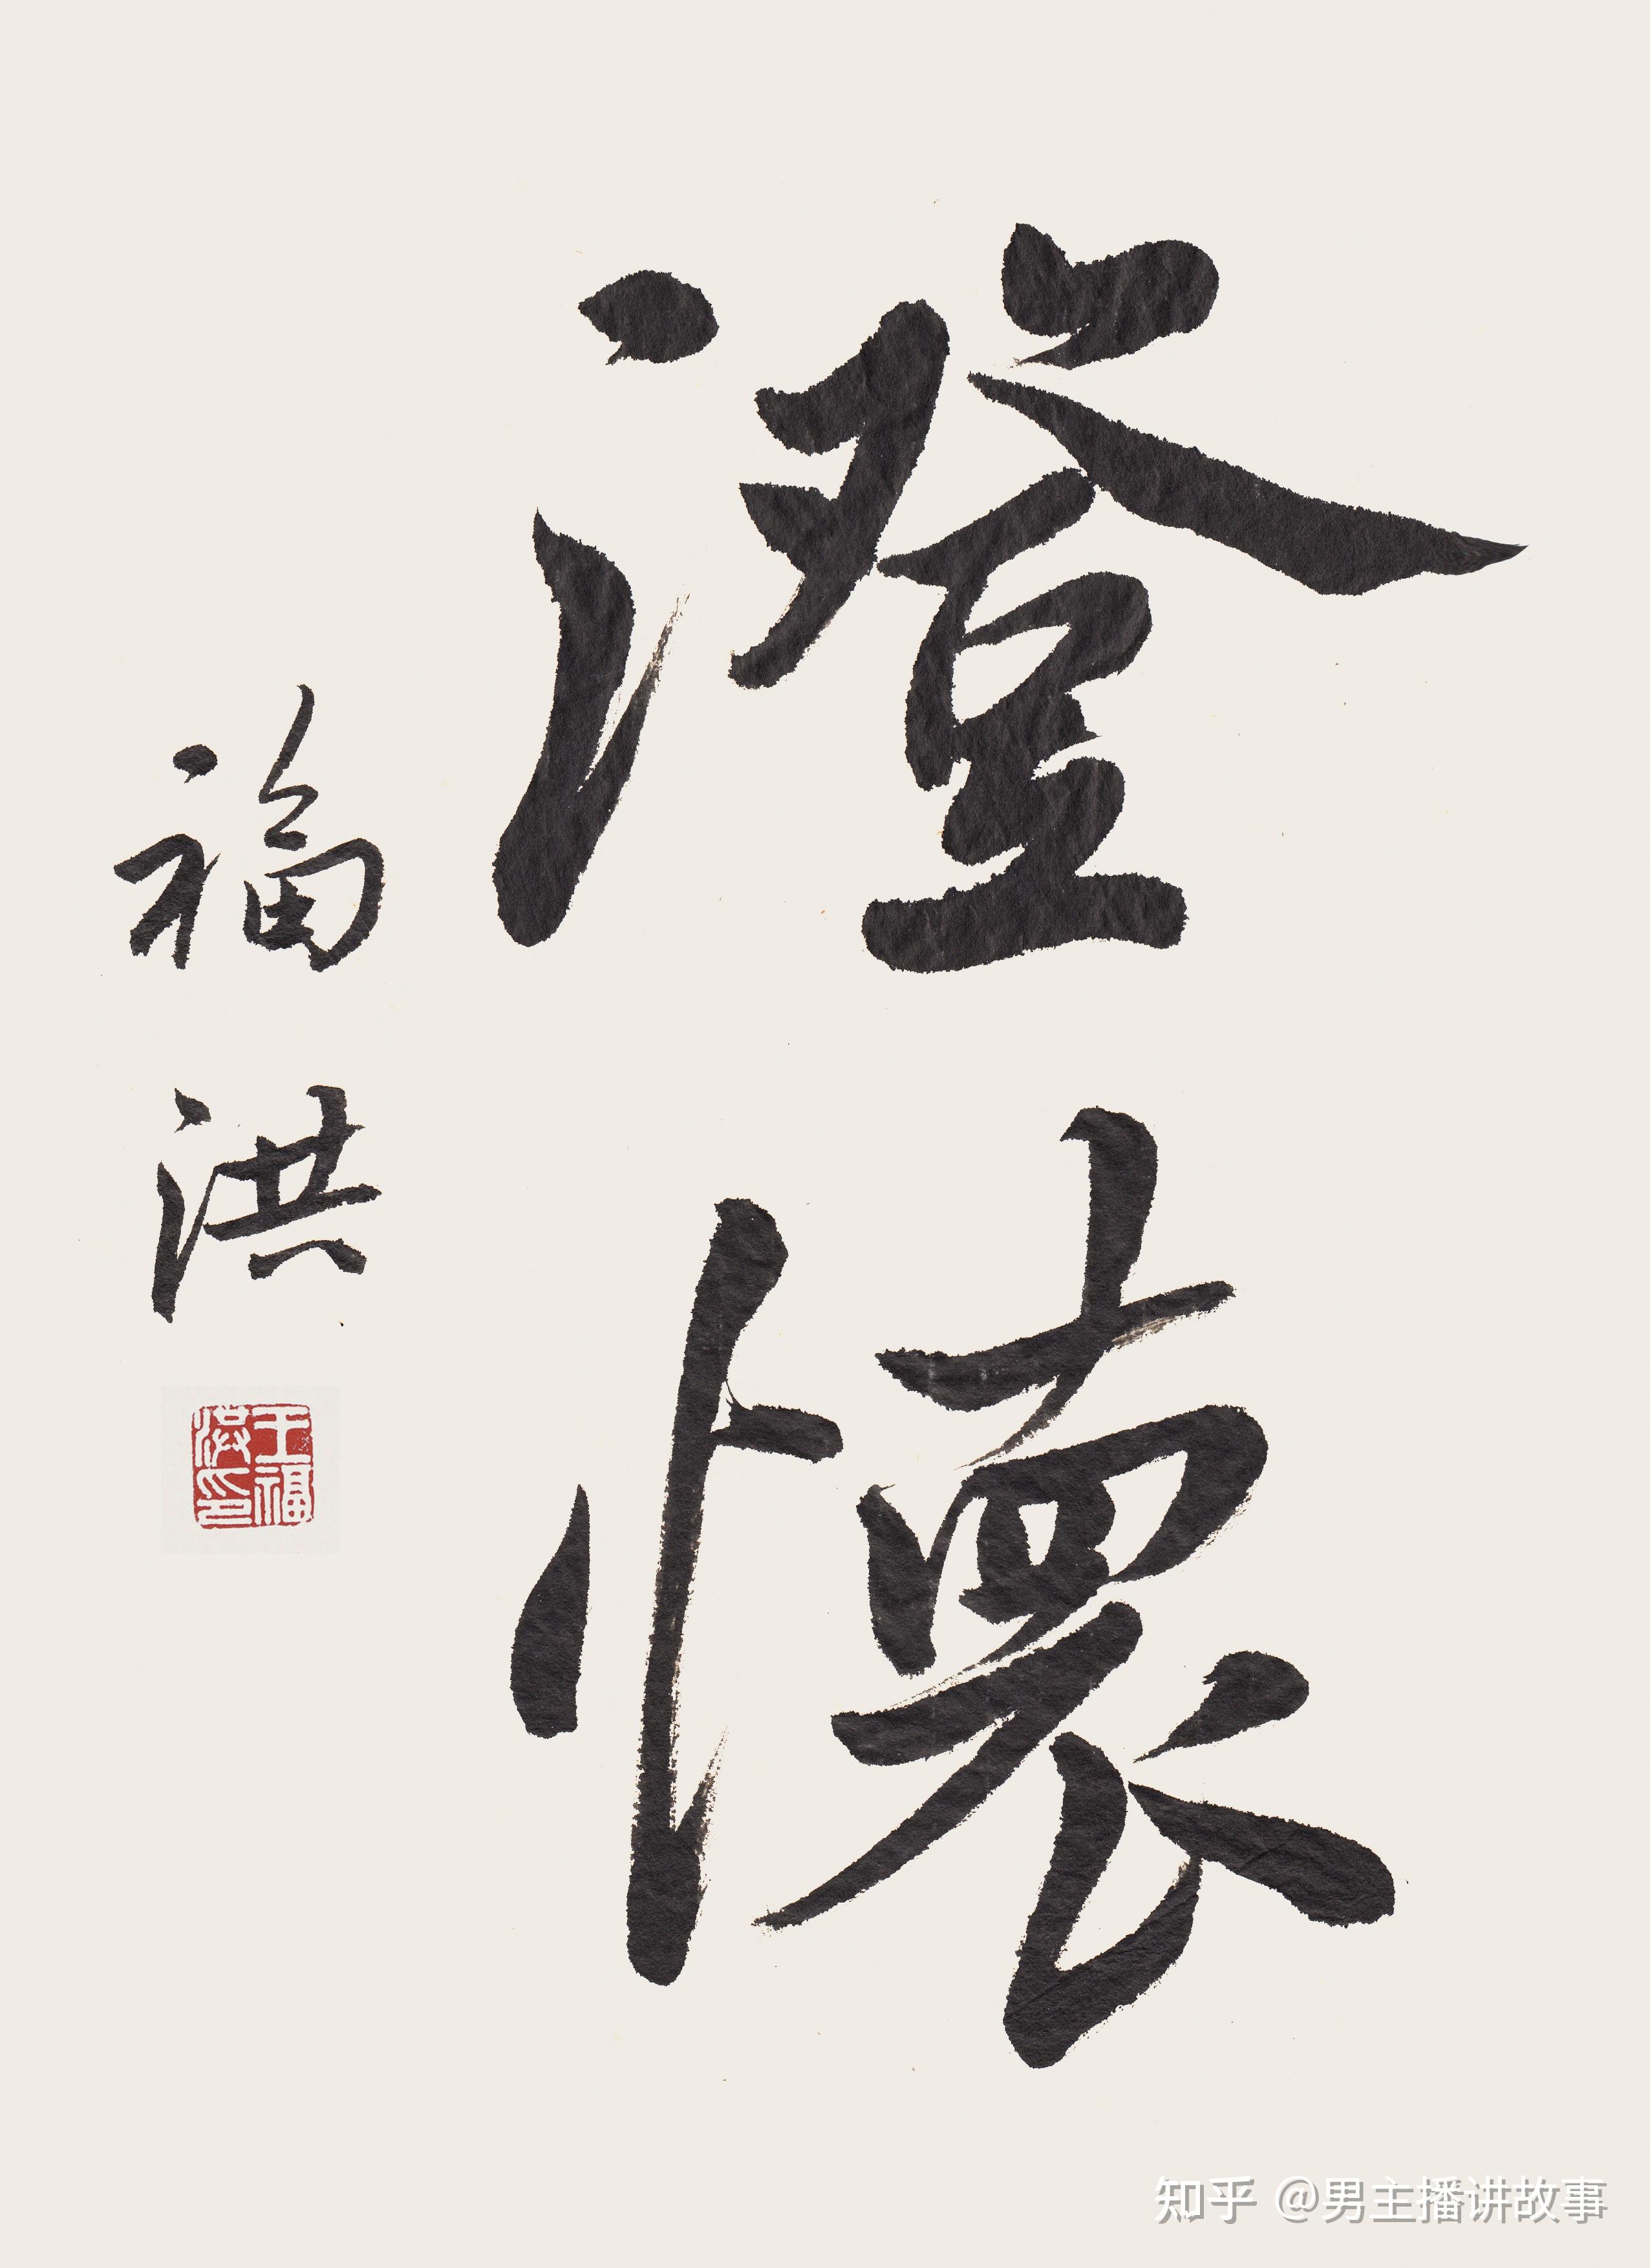 澄懷
福洪
王福洪印
知乎 @男主播讲故事